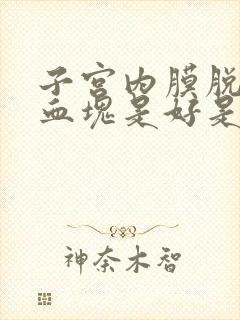 子宫内膜脱
血块是好是
神奈木智